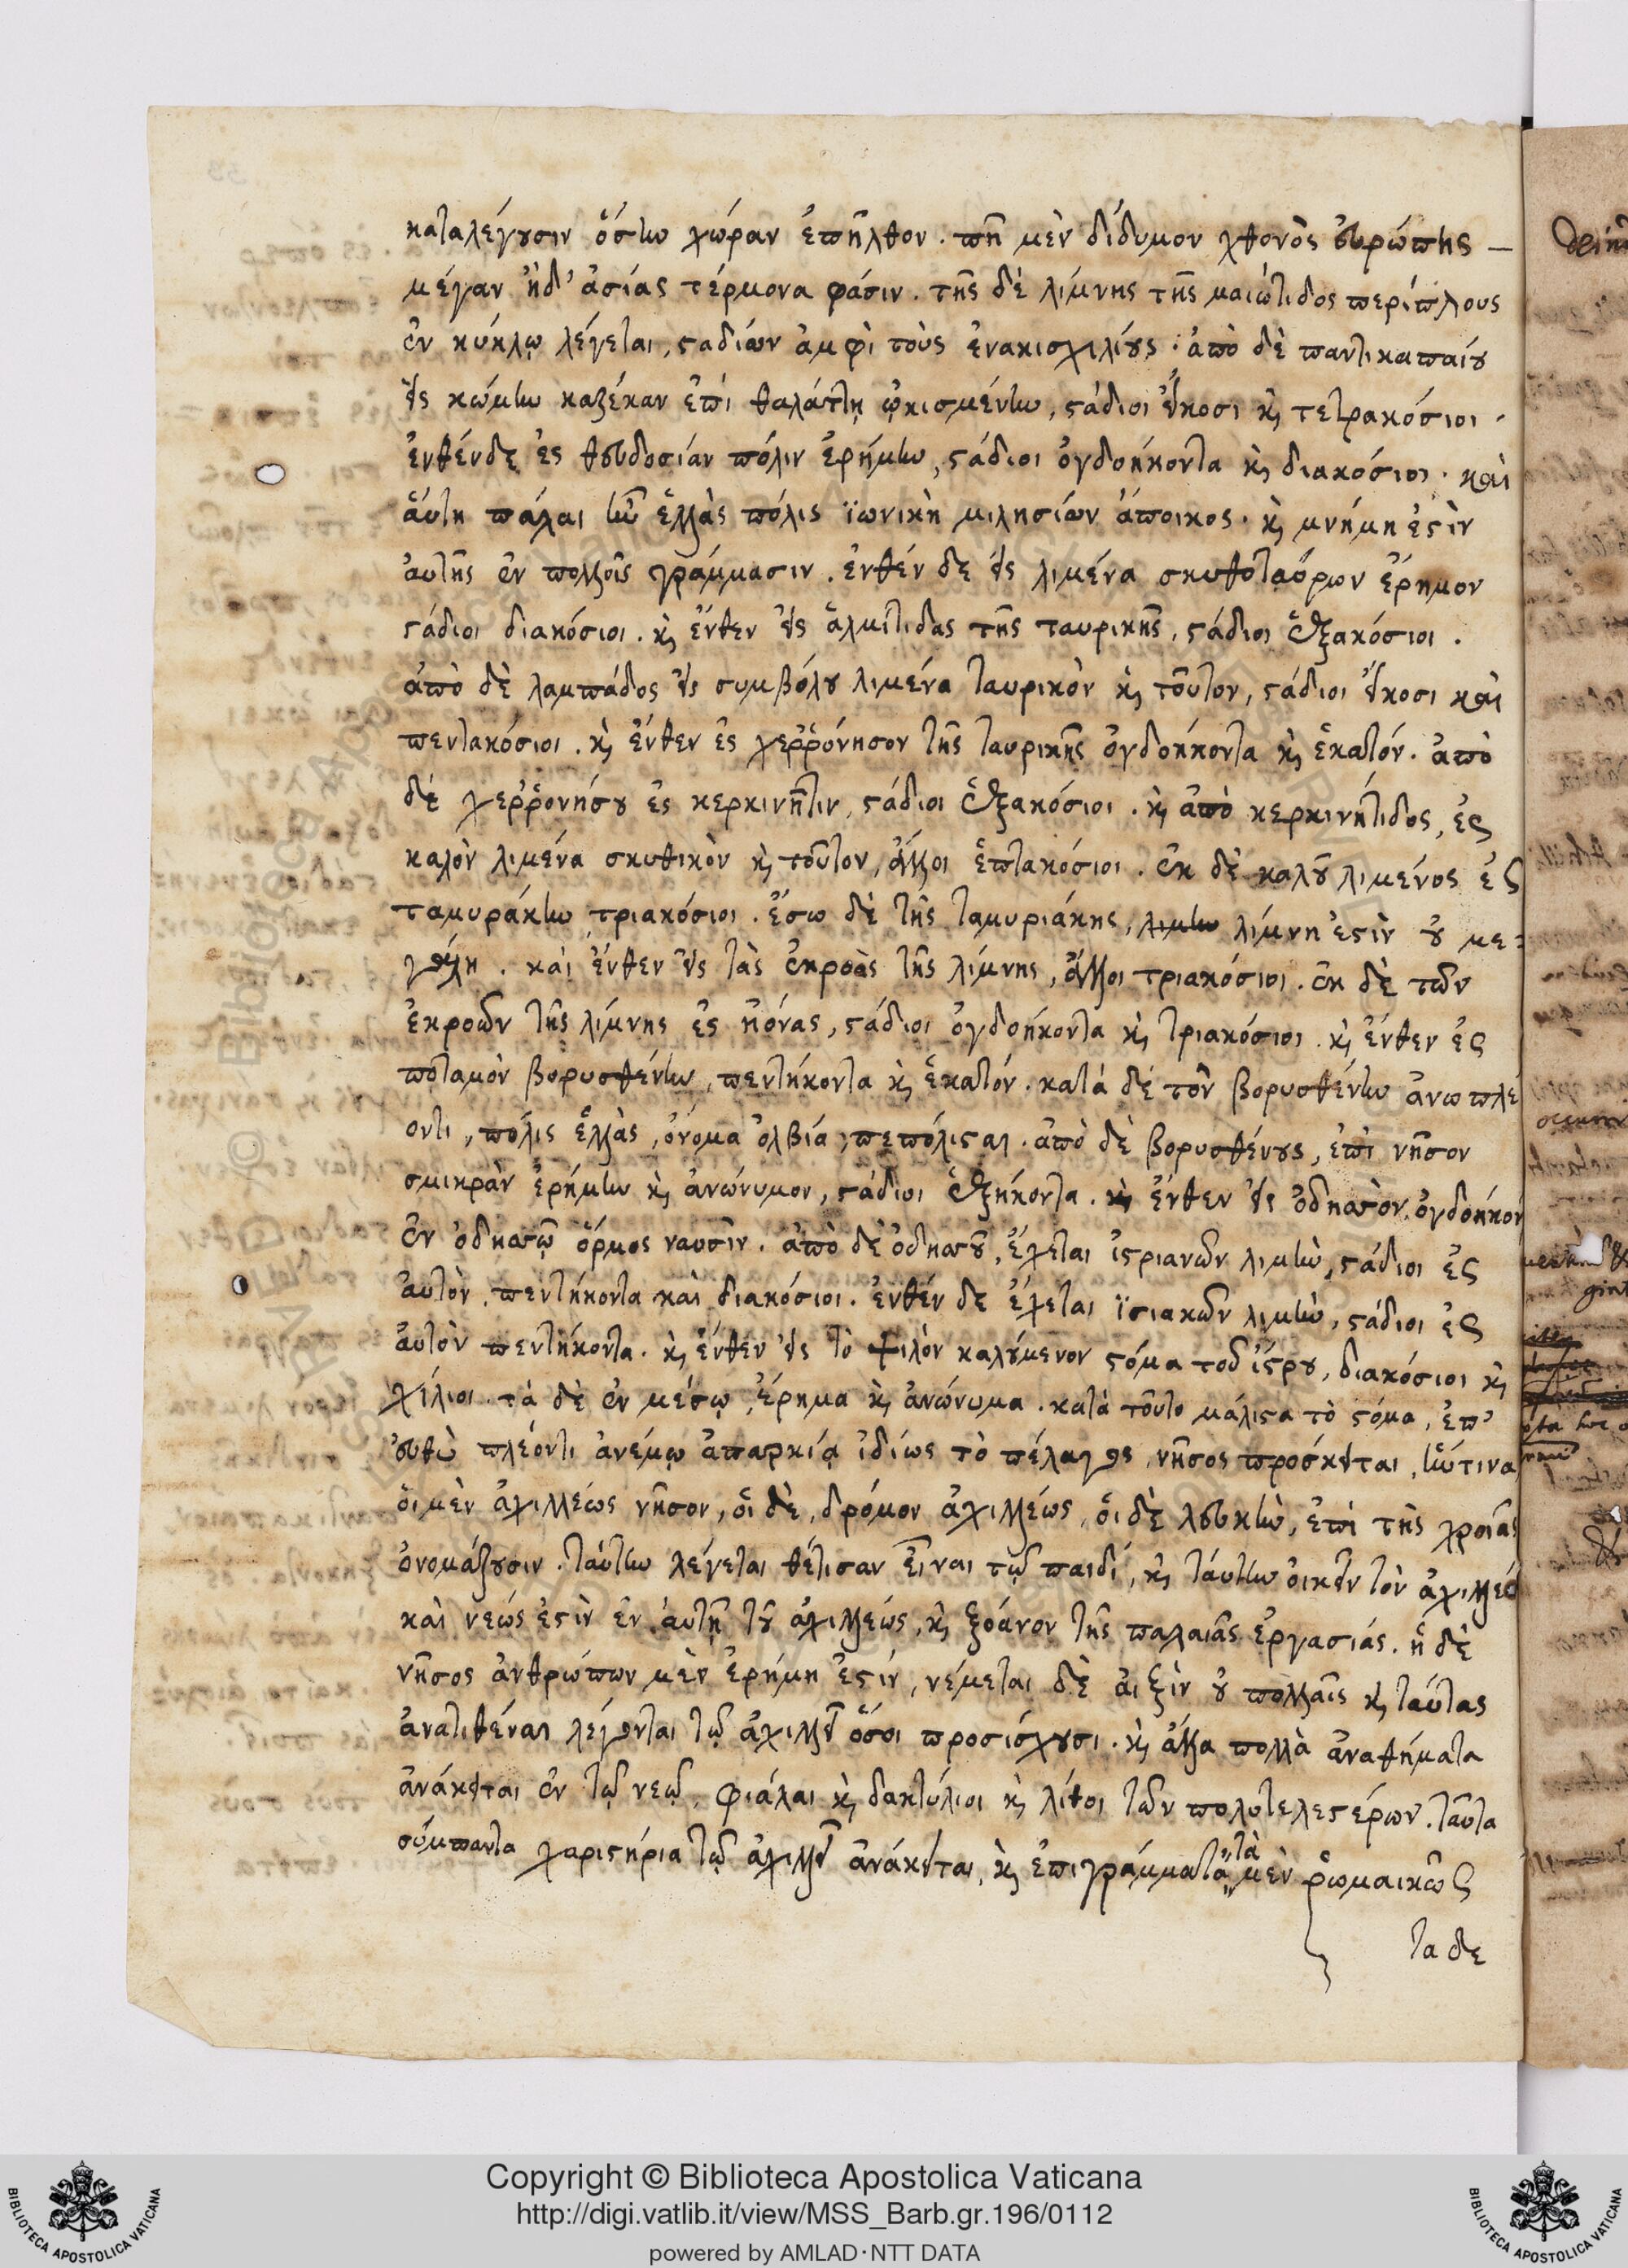 καταλέγουσιν ὅσην χώραν ἐπῆλθον. πῆ μὲν δίδυμον χθονὸς εὐρώπης –
μέγαν ἠδ' ἀσίας τέρμονα φάσιν. τῆς δὲ λίμνης τῆς μαιώτιδος περίπλους
ἐν κύκλῳ λέγεται, σταδίων ἀμφὶ τοὺς ἐνακισχιλίους. ἀπὸ δὲ παντικαπαίου
εἰς κώμην καζέκαν ἐπὶ θαλάττῃ ᾠκισμένην, στάδιοι εἴκοσι κ τετρακόσιοι.
ἐνθένδε ἐς θευδοσίαν πόλιν ἐρήμην, στάδιοι ὀγδοήκοντα κ διακόσιοι. καὶ
αὕτη πάλαι ἦν ἑλλὰς πόλις ϊωνικὴ μιλησίων ἄποικος. κ μνήμη ἐστὶν
αὐτῆς ἐν πολλοῖς γράμμασιν. ἐνθέν δε εἰς λιμένα σκυθοταύρων ἔρημον
στάδιοι διακόσιοι. κ ἔνθεν εἰς ἁλμίτιδας τῆς ταυρικῆς, στάδιοι ἑξακόσιοι.
ἀπὸ δὲ λαμπάδος εἰς συμβόλου λιμένα ταυρικὸν κ τοῦτον, στάδιοι εἴκοσι καὶ
πεντακόσιοι. κ ἔνθεν ἐς χερῤόνησον τῆς ταυρικῆς ὀγδοήκοντα κ ἑκατόν. ἀπὸ
δὲ χερῤονήσου ἐς κερκινῆτιν, στάδιοι ἑξακόσιοι. κ ἀπὸ κερκινήτιδος, ἐς
καλὸν λιμένα σκυθικὸν κ τοῦτον, ἄλλοι ἑπτακόσιοι. ἐκ δὲ καλοῦ λιμένος ἐς
ταμυράκην τριακόσιοι. ἔσω δὲ τῆς ταμυριάκης, λιμην λίμνη ἐστὶν οὐ με-
γάλη. καὶ ἔνθεν εἰς τὰς ἐκροὰς τῆς λίμνης, ἄλλοι τριακόσιοι. ἐκ δὲ τῶν
ἐκροῶν τῆς λίμνης ἐς ἠόνας, στάδιοι ὀγδοήκοντα κ τριακόσιοι. κ ἔνθεν ἐς
ποταμὸν βορυσθένην, πεντήκοντα κ ἑκατόν. κατὰ δὲ τὸν βορυσθένην ἄνω πλέ
οντι, πόλις ἑλλὰς, ὄνομα ὀλβία, πεπόλισται. ἀπὸ δὲ βορυσθένους, ἐπὶ νῆσον
σμικρὰν ἐρήμην κ ἀνώνυμον, στάδιοι ἑξήκοντα. κ ἔνθεν εἰς ὀδησσὸν, ὀγδοήκον
ἐν ὀδησσῷ ὅρμος ναυσίν. ἀπὸ δὲ ὀδησσοῦ, ἔχεται ἰστριανῶν λιμὴν, στάδιοι ἐς
αὐτὸν, πεντήκοντα καὶ διακόσιοι. ἐνθέν δε ἔχεται ϊσιακῶν λιμὴν, στάδιοι ἐς
αὐτὸν πεντήκοντα. κ ἔνθεν εἰς τὸ ψιλὸν καλούμενον στόμα τοῦ ἴστρου, διακόσιοι κ
χίλιοι. τὰ δὲ ἐν μέσῳ, ἔρημα κ ἀνώνυμα. κατὰ τοῦτο μάλιστα τὸ στόμα, ἐπ'
εὐθὺ πλέοντι ἀνέμῳ ἀπαρκίᾳ ἰδίως τὸ πέλαγος, νῆσος πρόσκειται, ἥντινα
οἱ μὲν ἀχιλλέως νῆσον, οἱ δὲ, δρόμον ἀχιλλέως, οἱ δὲ λευκὴν, ἐπὶ τῆς χροιᾶς
ὀνομάζουσιν. ταύτην λέγεται θέτισαν εἶναι τῷ παιδί, κ ταύτην οἰκεῖν τὸν ἀχιλλέα
καὶ νεώς ἐστὶν ἐν αὐτῇ τοῦ ἀχιλλέως, κ ξόανον τῆς παλαιᾶς ἐργασίας. ἡ δὲ
νῆσος ἀνθρώπων μὲν ἐρήμη ἐστίν, νέμεται δὲ αἰξὶν οὐ πολλαῖς κ ταύτας
ἀνατιθέναι λέγονται τῷ ἀχιλλεῖ ὅσοι προσίσχουσι. κ ἄλλα πολλὰ ἀναθήματα
ἀνάκειται ἐν τῷ νεῷ, φιάλαι κ δακτύλιοι κ λίθοι τῶν πολυτελεστέρων. ταῦτα
σύμπαντα χαριστήρια τῷ ἀχιλλεῖ ἀνάκειται, κ ἐπιγράμματα, τὰ μὲν ῥωμαικῶς
τα δε
Copyright © Biblioteca Apostolica Vaticana
http://digi.vatlib.it/view/MSS_Barb.gr.196/0112
powered by AMLAD·NTT DATA
BIBLIOTECA APOSTOLICA VATICANA
BIBLIOTECA APOSTOLICA VATICANA